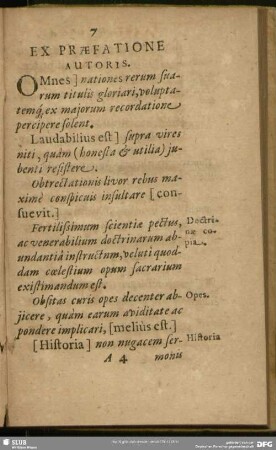 7
EX PRÆFATIONE
AUTORIS.
OMnes] nationes rerum sua-
rum titulis gloriari, volupta-
temq́; ex majorum recordatione
percipere solent.
Laudabilius est] supra vires
niti, quàm (honesta & utilia) ju-
benti resistere.
Obtrectationis livor rebus ma-
ximè conspicuis insultare [con-
suevit.]
Fertilissimum scientiæ pectus, Doctri-
ac venerabilium doctrinarum ab- næ co-
undantiâ instructum, veluti quod- pia.
dam cœlestium opum sacrarium
existimandum est.
Obsitas curis opes decenter ab- Opes.
jicere, quàm earum aviditate ac
pondere implicari, [melius est.]
[Historia] non nugacem ser- Historia
A 4 monu
SLUB